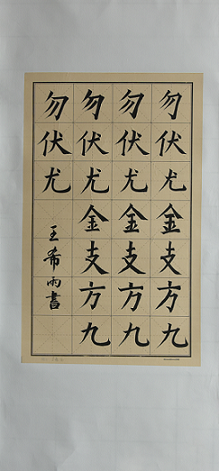 勿伏尤金支方九
勿伏尤金支方九
勿伏尤金支方九
勿伏尤
王希雨書